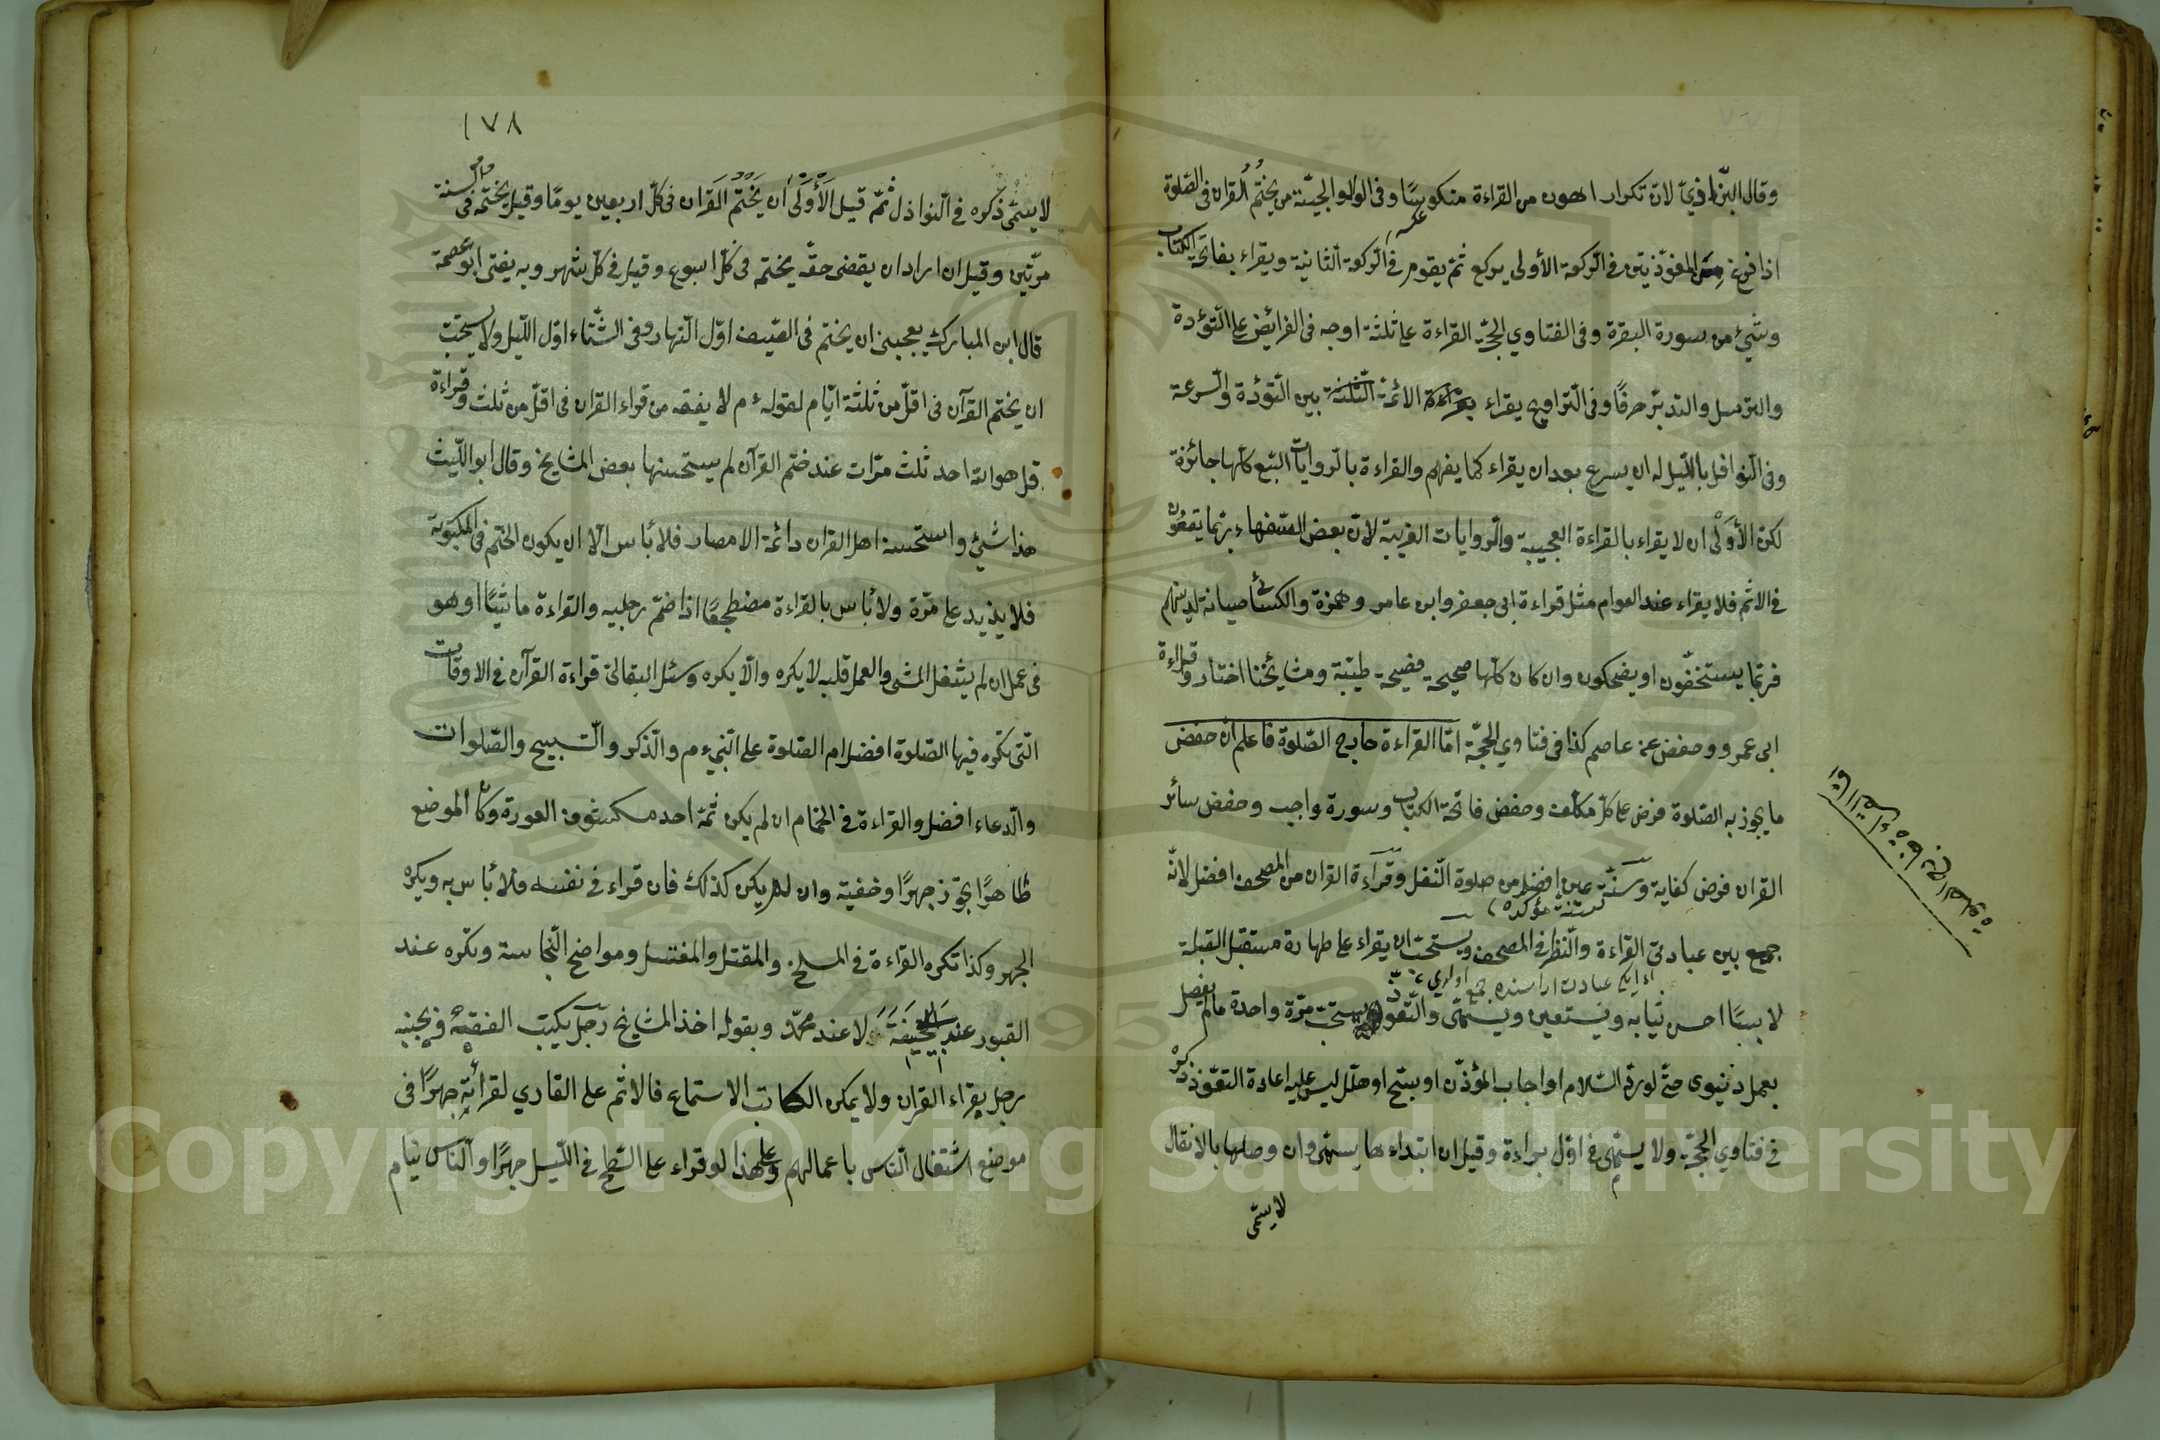 وقال البزّافيّ لانّ تكرار اهون من القراءة منكوسًا وفى الولوالجيّة من يختُمُ القران فى الصّلوة
اذا فرغ من المعوّذتين فى الرّكعة الأولى يركع ثمّ يقوم فى الرّكعة الثانية ويقراء بفاتحة الكتاب
وشئ من سورة البقرة وفى الفتاوي الحجّة القراءة على ثلثة اوجه فى الفرائض على التّؤدة
والترسل والتدبّر حرفًا وفى التراويح يقراء بقراءة الائمة الثلثة بين التّؤدة والسّرعة
وفى النّوافل باللّيل له ان يسرع بعد ان يقراء كما يفهم والقراءة بالرّوايات السّبع كلّها جائزة
لكن الأَوْلى ان لا يقراء بالقراءة العجيبة والرّوايات الغريبة لانّ بعض السّفهاء ربّما يقعون
فى الاثم فلا يقراء عند العوام مثل قراءة ابى جعفر وابن عامر وحمزة والكسائى صيانة لدينهم
فربّما يستخفّون او يضحكون وان كان كلّها صحيحة فصيحة طيّبة ومشايخنا اختاروا قراءة
ابى عمرو وحفص عن عاصم كذا فى فتاوي الحجّة امّا القراءة خارج الصّلوة فاعلم انّ حفض
ما يجوز به الصّلوة فرض على كلّ مكلّف وحفض فاتحة الكتاب وسورة واجب وحفض سائر
القران فرض كفاية وسنّة عين افضل من صلوة النّفل وقراءة القران من المصحف افضل لانّه
سنّة مؤكّده
جمع بين عبادتى القراءة والنّظر فى المصحف ويستحبّ ان يقراء على طهارة مستقبل القبلة
لابسًا احسن ثيابه ويستعين ويسمّى والتّعوّذ يستحبّ مرّة واحدة ما لم يفصل
بعمل دنيوى حتّى لو ردّ السّلام او اجاب المؤذّن او سبّح او هلّل ليس عليه اعادة التعوّذ ذكره
فى فتاوي الحجّة ولا يسمّى فى اوّل براءة وقيل ان ابتداء ها يسمّى وان وصلها بالانفال
لا يسمّى
١٧٨
لا يسمّى ذكره فى النّوازل ثمّ قيل الأَوْلى ان يَخْتُم القران فى كلّ اربعين يومًا وقيل يختمه فى السنة
مرّتين وقيل ان اراد ان يقضى حقّه يختم فى كلّ اسبوع وقيل فى كلّ شهر وبه يفتى ابو عصمة
قال ابن المبارك يعجبنى ان يختم فى الصّيف اوّل النّهار وفى الشّتاء اوّل اللّيل ولا يستحبّ
ان يختم القرآن فى اقلّ من ثلثة ايّام لقوله ءم لا يفقه من قراء القران فى اقلّ من ثلث وقراءة
قل هو الله احد ثلث مرّات عند ختم القرآن لم يستحسنها بعض المشايخ وقال ابو اللّيث
هذا شئ واستحسنه اهل القران وائمّة الامصار فلا بأس الّا ان يكون الختم فى المكتوبة
فلا يزيد على مرّة ولا بأس بالقراءة مضطجعًا اذا ضمّ رجليه والقراءة ماشيًا او هو
فى عمل ان لم يشغل المشى والعمل قلبه لا يكره والّا يكره وسئل البقالى قراءة القرآن فى الاوقات
الّتى تكره فيها الصّلوة افضل ام الصّلوة على النّبى ءم والذّكر والتّسبيح والصّلوات
والدّعاء افضل والقراءة فى الحمّام ان لم يكن ثمّة احد مكشوف العورة وكان الموضع
طاهرًا يجوّز جهرًا وخفية وان لم يكن كذلك فان قراء فى نفسه فلا بأس به ويكره
الجهر وكذا تكره القراءة فى المسلخ والمقتل والمغتسل ومواضع النّجاسة وتكره عند
القبور عند ابى حنيفة لا عند محمّد وبقوله اخذ المشايخ رجل يكتب الفقه وبجنبه
رجل يقراء القران ولا يمكن الكاتب الاستماع فالاثم على القاري لقرائته جهرًا فى
موضع اشتغال النّاس باعمالهم وعلى هذا لو قراء على السّطح فى اللّيل جهرًا والنّاس نيام
Copyright © King Saud University